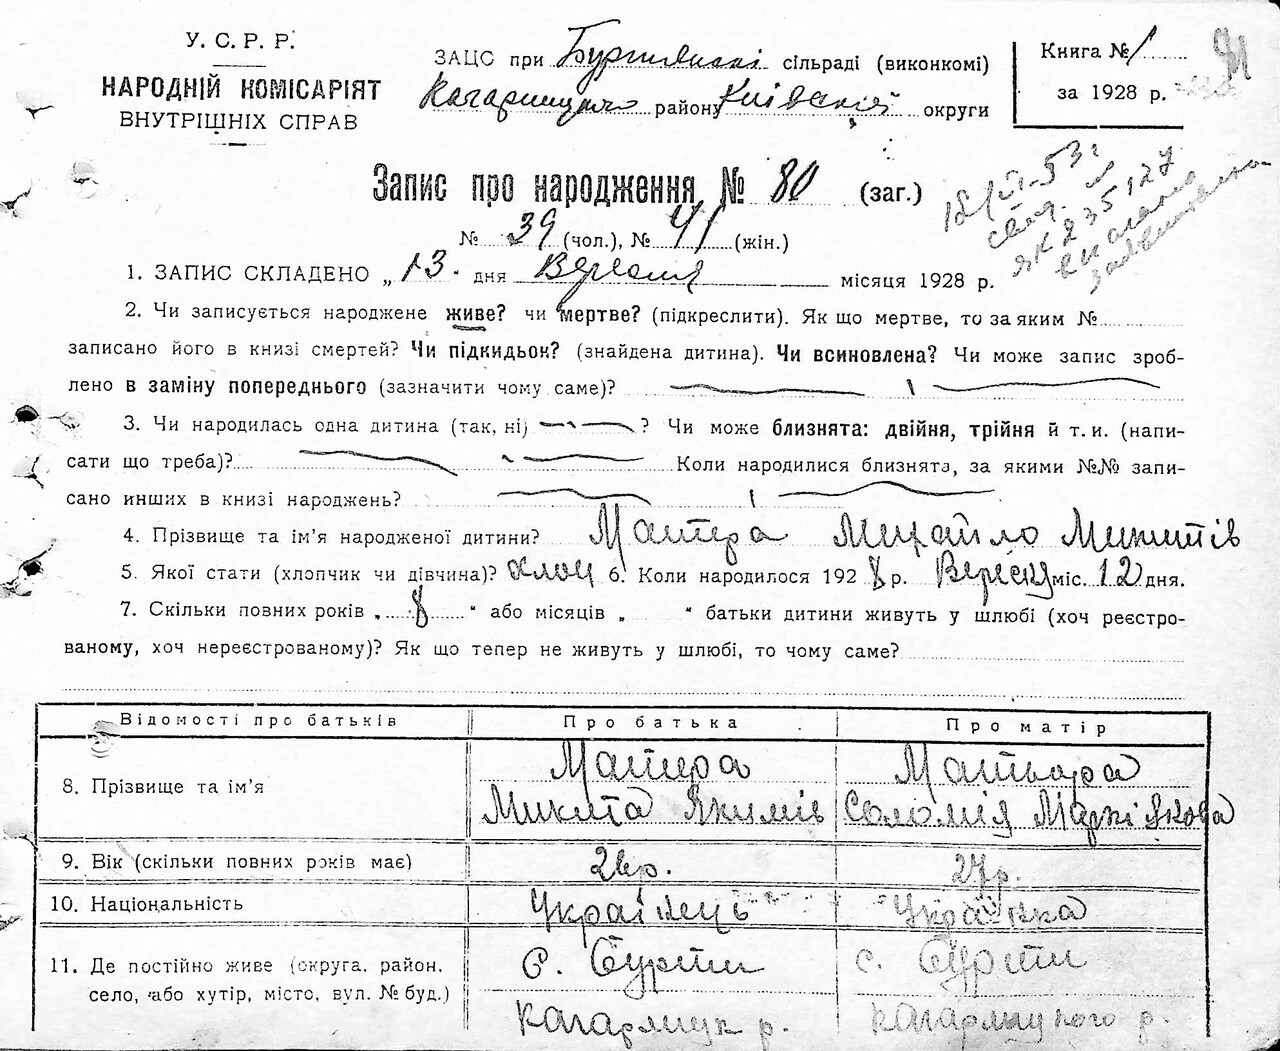 У. С. Р. Р.
НАРОДНІЙ КОМІСАРІЯТ
ВНУТРІШНІХ СПРАВ
ЗАЦС при сільраді (виконкомі)
Кагарлицького району Київської округи
Книга № 1
за 1928 р.
Запис про народження № 80 (заг.)
№ 39 (чол.), № 41 (жін.)
1. ЗАПИС СКЛАДЕНО „13" дня Вересня місяця 1928 р.
2. Чи записується народжене живе? чи мертве? (підкреслити). Як що мертве, то за яким №
записано його в книзі смертей? Чи підкидьок? (знайдена дитина). Чи всиновлена? Чи може запис зроб-
лено в заміну попереднього (зазначити чому саме)?
3. Чи народилась одна дитина (так, ні) ? Чи може близнята: двійня, трійня й т. и. (напи-
сати що треба)? Коли народилися близнята, за якими №№ запи-
сано инших в книзі народжень?
4. Прізвище та ім'я народженої дитини? Матера Михайло Микитів
5. Якої стати (хлопчик чи дівчина)? хлоп 6. Коли народилося 1928 р. Вересня міс. 12 дня.
7. Скільки повних років „ 8 " або місяців „ " батьки дитини живуть у шлюбі (хоч реєстро-
ваному, хоч нереєстрованому)? Як що тепер не живуть у шлюбі, то чому саме?
Відомості про батьків Про батька Про матір
8. Прізвище та ім'я Матера
Микита Якимів Соломія
9. Вік (скільки повних років має) 27р.
10. Національність Українець Українка
11. Де постійно живе (округа, район, с. Бурти с. Бурти
село, або хутір, місто, вул. № буд.) Кагарлицк р. Кагарлицкого р.